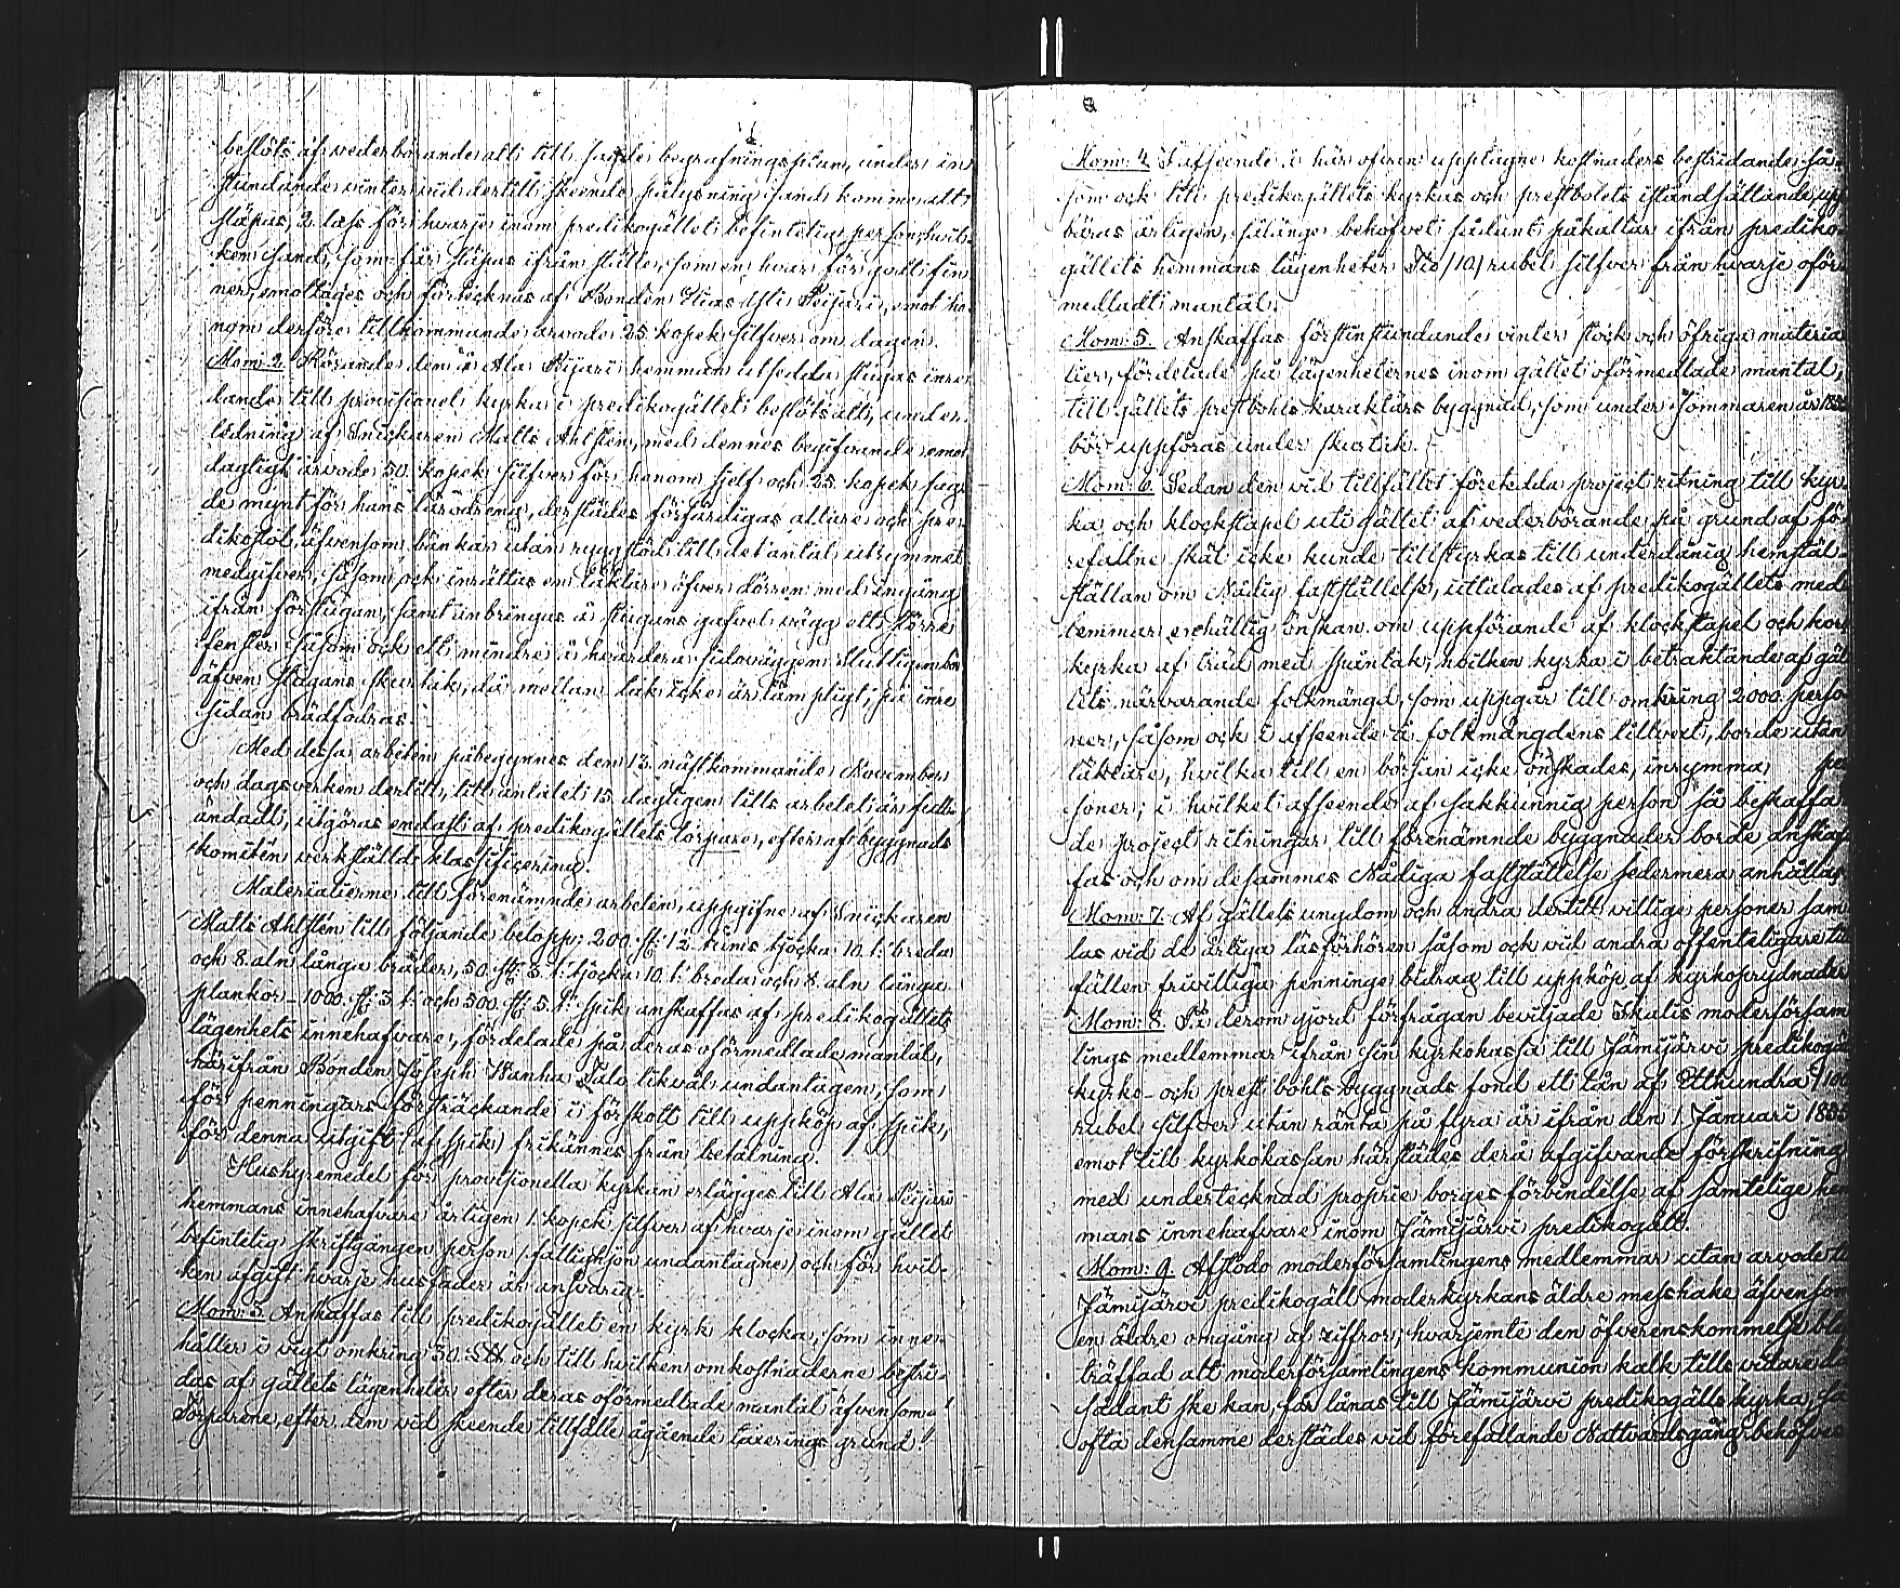 beslöts af wederbörande att till sagde begrafningsplan, under in
stundande winter wid dertill skeende pålysning sand kommer att
släpas, 2 lass för hvarje inom predikogället befintelig person, hvil-
ken sand, som får släpas ifrån ställe, som en hvar för godt fin
ner, emottages och förtecknas af Bonden Elias Esti Peijari, emot ho-
nom derföre tillkommande arvode 25 kopek silfver om dagen.
Mom: 2. Rörande den å Ala Peijari hemman utsedda stugas inre-
dande till provisionel kyrka i predikogället beslöts att, under
ledning af Snickaren Matts Ahlstén, med dennes begifvande emot
dagligt arvode 50 kopek silfver för honom sjelf och 25 kopek sag-
de mynt för hans lärodreng, derstädes förfärdigas altare och pre-
dikstol, äfvensom bänkar utan ryggstöd till det antal utrymmet
medgifver, såsom ock inrättes en läktare öfver dörren med ingång
ifrån förstugan, samt anbringas å stugans gafvel vägg ett större
fenster såsom ock ett mindre å heardera sidoväggen. Slutligen bör
äfven stugans skurtak, då mellan tak icke är lämpligt, på inre
sidan brädfodras.
Med dessa arbeten påbegynnes den 13 nästkommande November
och dagsverken dertill, till antalet 15 dagligen tills arbetet är full-
ändadt, utgöras endast af predikogällets torpare, efter af byggnads
komitén werkställd klassificering.
Materialierne till förenämnde arbeten, uppgifne af Snickaren
Matts Ahlstén till följande belopp: 200 st: 1½ tums tjocka 10 t: breda
och 8 aln långa bräder, 50 st: 3 t: tjocka 10 t: breda och 8 aln långa
plankor - 1000 st: 3 t: och 500 st: 5 t: spik anskaffas af predikogällets
lägenhets innehafvare, fördelade på deras oförmedlade mantal,
härifrån Bonden Joseph Wanha Talo likväl undantagen, som
för penningars försträckande i förskott till uppköp af spik,
för denna utgift (af spik) frikännes från betalning.
Hushyremedel för provisionella kyrkan erlägges till Ala Peijari
hemmans innehafvare årligen 1 kopek silfver af hvarje inom gället
befintelig skriftgången person (fattighjon undantagne) och för hvil-
ken afgift hvarje husfader är ansvarig.
Mom: 3. Anskaffas till predikogället en kyrk klocka, som inne-
håller i vigt omkring 30 L℔ och till hvilken omkostnaderne bestri-
das af gällets lägenheter efter deras oförmedlade mantal äfvensom
Torparene, efter dem vid skeende tillfälle ågående taxerings grund.
Mom: 4. I afseende å här ofvan upptagne kostnaders bestridande så-
som ock till predikogällets kyrkas och prestbolets iståndsättande, upp
bäras årligen, sålänge behofvet sådant påkallar ifrån prediko-
gällets hemmans lägenheter Tio /10/ rubel silfver från hvarje oför-
medladt mantal.
Mom: 5. Anskaffas förstinstundande vinter stock och öfriga materia
lier, fördelade på lägenheternes inom gället oförmedlade mantal,
till gällets prestbohls karaktärs byggnad, som under sommaren år
bör uppföras under skurtak.
Mom: 6. Sedan den vid tillfället företedda project ritning till kyr-
ka och klockstapel uti gället af vederbörande på grund af fö-
refallne skäl icke kunde tillstyrkas till underdånig hemstäl-
ställan om Nådig fastställelse, uttalades af predikogällets med
lemmar enhällig önskan om uppförande af klockstapel och kors
kyrka af träd med spåntak, hvilken kyrka i betraktande af gäl
lets närvarande folkmängd, som uppgår till omkring 2000 perso-
ner, såsom ock i afseende å folkmängdens tillvext, borde utan
läktare, hvilka till en början icke önskades, inrymma per
soner; i hvilket afseende af sakkunnig person så beskaffa
de project ritningar till förenämnde byggnader borde anskaf
fas och om desammes Nådiga fastställelse sedermera anhållas.
Mom: 7. Af gällets ungdom och andra dertill villige personer sam
las vid de årliga läsförhören såsom ock vid andra offenteligare till
fällen frivilliga penninge bidrag till uppköp af kyrkoprydnader
Mom: 8. På derom gjord förfrågan beviljade Ikalis moderförsam
lings medlemmar ifrån sin kyrkokassa till Jämijärvi predikogälls
kyrko- och prest bohls byggnads fond ett lån af Etthundra /100
rubel silfver utan ränta på fyra år ifrån den 1 Januari 1855
emot till kyrkokassan härstädes derå afgifvande förskrifning
med undertecknad proprie borges förbindelse af samtelige hem
mans innehafvare inom Jämijärvi predikogäll.
Mom: 9. Afstodo moderförsamlingens medlemmar utan arvode till
Jämijärvi predikogäll moderkyrkans äldre messhake äfvensom
en äldre omgång af ziffror; hvarjemte den öfverenskommelse blef
träffad att moderförsamlingens kommunion kalk tills vidare då
sådant ske kan, får lånas till Jämijärvi predikogälls kyrka, så
ofta densamme derstädes vid förefallande Nattvardsgång behöfves